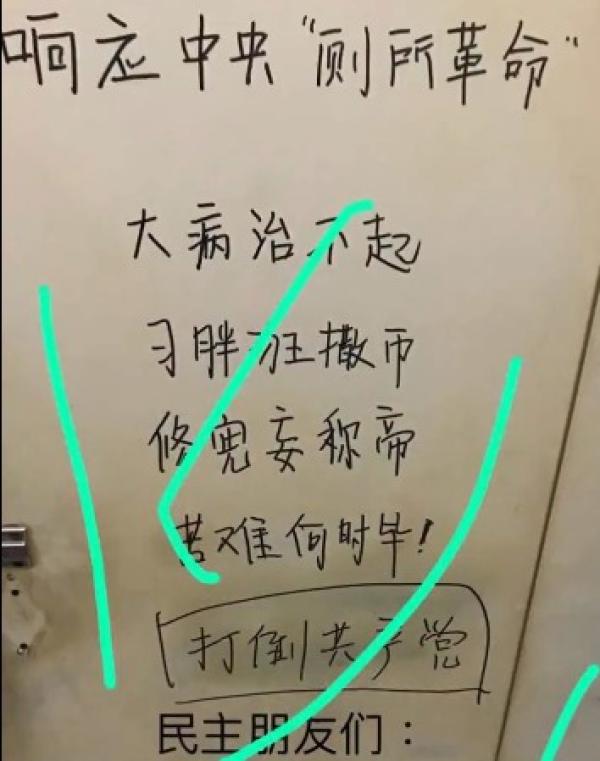 响应中央"厕所革命"
大病治不起
习胖狂撒币
修宪妄称帝
苦难何时毕!
打倒共产党
民主朋友们：